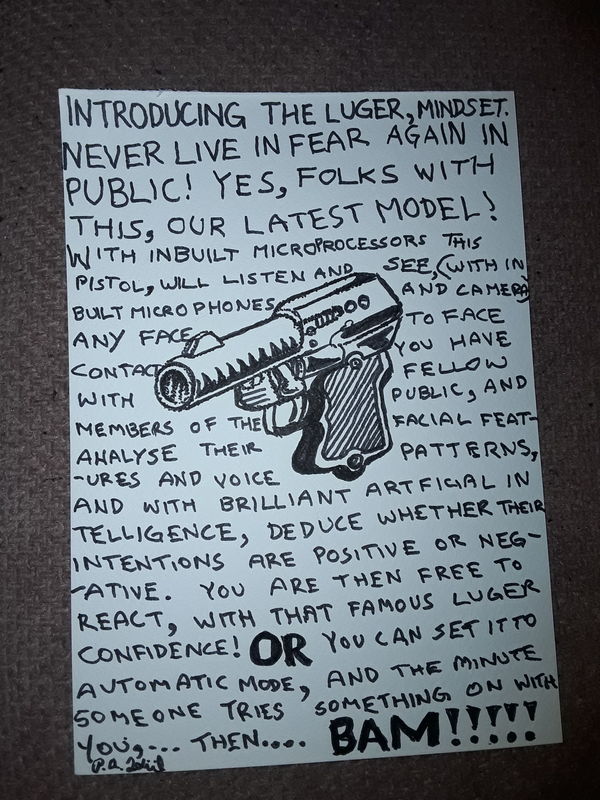 INTRODUCING THE LUGER, MINDSET.
NEVER LIVE IN FEAR AGAIN IN
PUBLIC! YES, FOLKS WITH
THIS, OUR LATEST MODEL!
WITH INBUILT MICROPROCESSORS THIS
PISTOL, WILL LISTEN AND SEE, (WITH IN
BUILT MICROPHONES AND CAMERA)
ANY FACE TO FACE
CONTACT YOU HAVE
WITH FELLOW
MEMBERS OF THE PUBLIC, AND
ANALYSE THEIR FACIAL FEAT-
-URES AND VOICE PATTERNS,
AND WITH BRILLIANT ARTFICIAL IN
TELLIGENCE, DEDUCE WHETHER THEIR
INTENTIONS ARE POSITIVE OR NEG-
-ATIVE. YOU ARE THEN FREE TO
REACT, WITH THAT FAMOUS LUGER
CONFIDENCE! OR YOU CAN SET IT TO
AUTOMATIC MODE, AND THE MINUTE
SOMEONE TRIES SOMETHING ON WITH
YOU,... THEN.... BAM!!!!!
P.A.